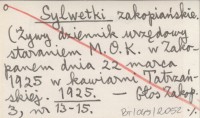 Sylwetki zakopiańskie.
(Żywy dziennik urzędowy
staraniem M.O.K. w Zako-
panem dnia 22 marca
1925 w kawiarni Tatrzań-
skiej. - Głos Zakop.
3, 1925. nr 13-15.